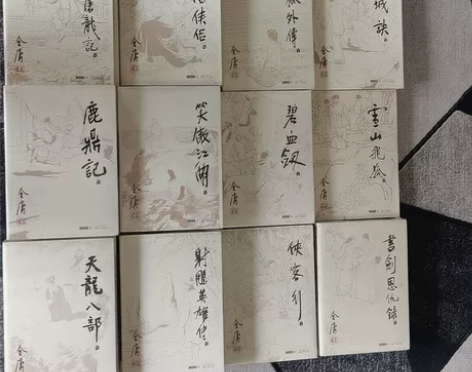 屠龍記
金庸
俠侶
外傳
城訣
鹿鼎記
金庸
笑傲江湖
金庸
碧血劍
金庸
雪山飛狐
金庸
天龍八部
金庸
射鵰英雄傳
金庸
俠客行
金庸
書劍恩仇錄
金庸